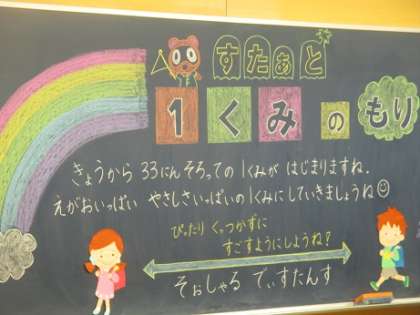 すたぁと
1くみのもり
きょうから 33にん そろっての 1くみが はじまりますね。
えがおいっぱい やさしさいっぱいの1くみに していきましょうね
ぴったり くっつかずに
すごすようにしようね!
そぉしゃる でぃすたんす